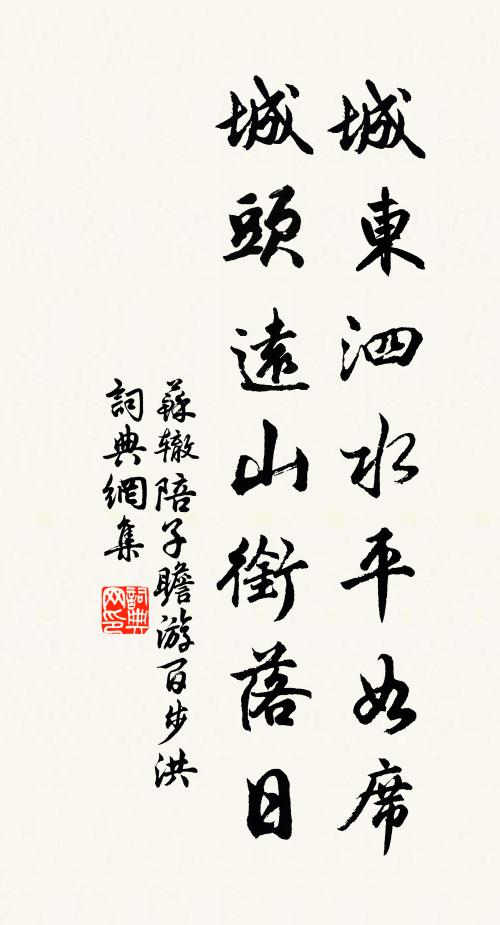 城東泗水平如席
城頭遠山銜落日
蘇辙陪子瞻游百步洪
詞典網集
詞典网印